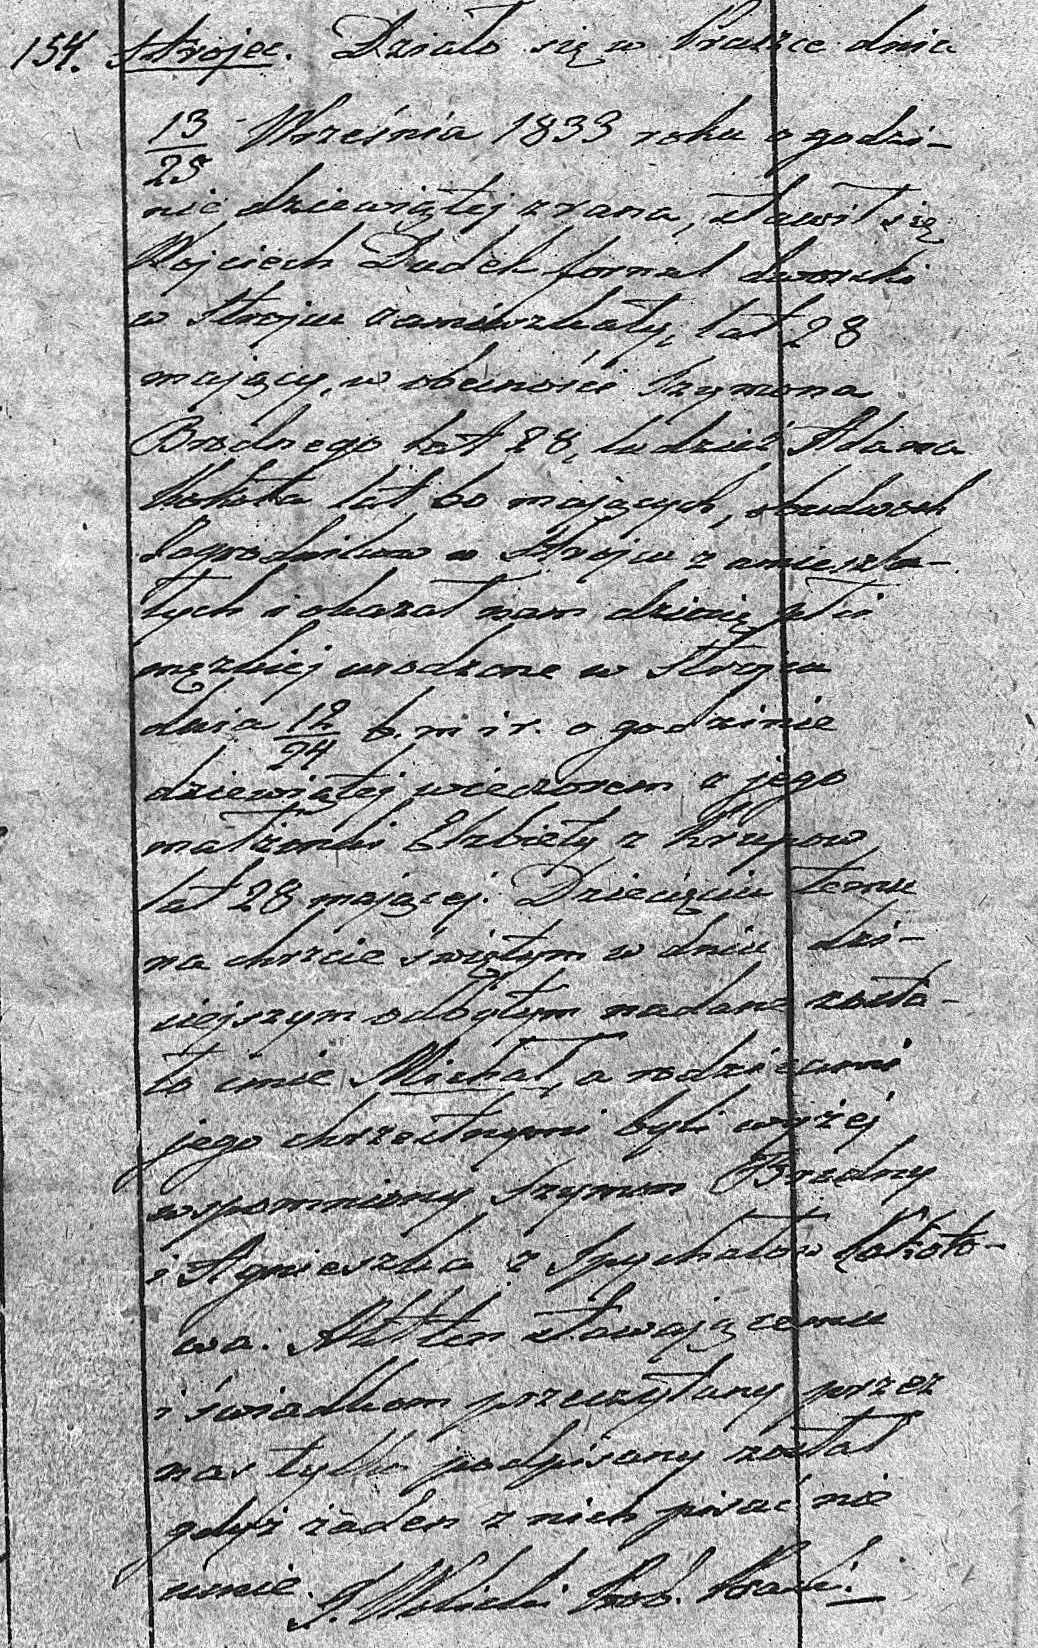 154. Strojec. Działo się w Praszce dnia
13/25 Września 1833 roku o godzi-
nie dziewiątej z rana, stawił się
Wojciech Dudek fornal dworski
w Strojcu zamieszkały, lat 28
mający, w obecności Szymona
Brednego lat 28, tudzież Adama
lat 60 mających, obudwoch
Zagrodników w Strojcu zamieszka-
łych i okazał nam dziecię płci
męzkiej urodzone w Strojcu
dnia 12/24 b. m i r. o godzinie
dziewiątej wieczorem z jego
małżonki Elzbiety z Krzupow
lat 28 mającej. Dziecięciu temu
na chrzcie świętym w dniu dzi-
siejszym odbytym nadane zosta-
ło imie Michał, a rodzicami
jego chrzestnymi byli wyżej
wspomniony Szymon Bredny
i Agnieszka z Spychałów
wa. Akt ten stawającemu
i świadkom przeczytany przez
nas tylko podpisany został
gdyż żaden z nich pisać nie
umie. Prob. Prasz.